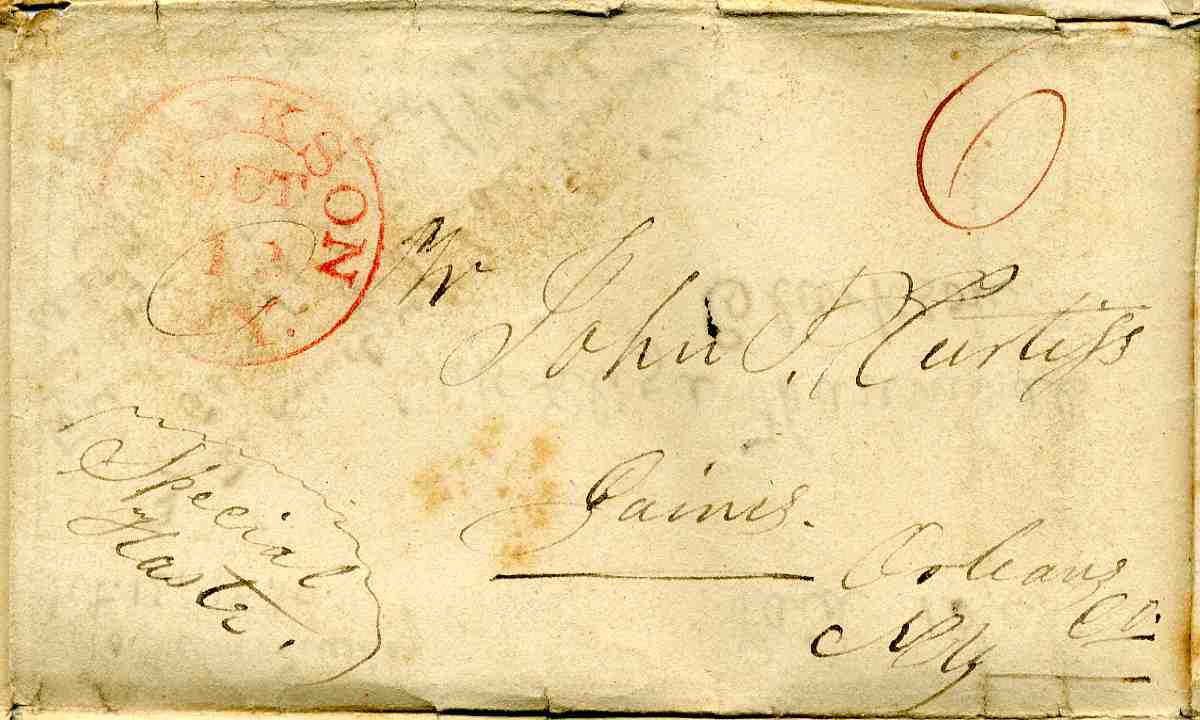 KSON
OCT
6
Mr John S. Curtiss
Gaines.
Orleans
Co.
NY
Special
Haste.